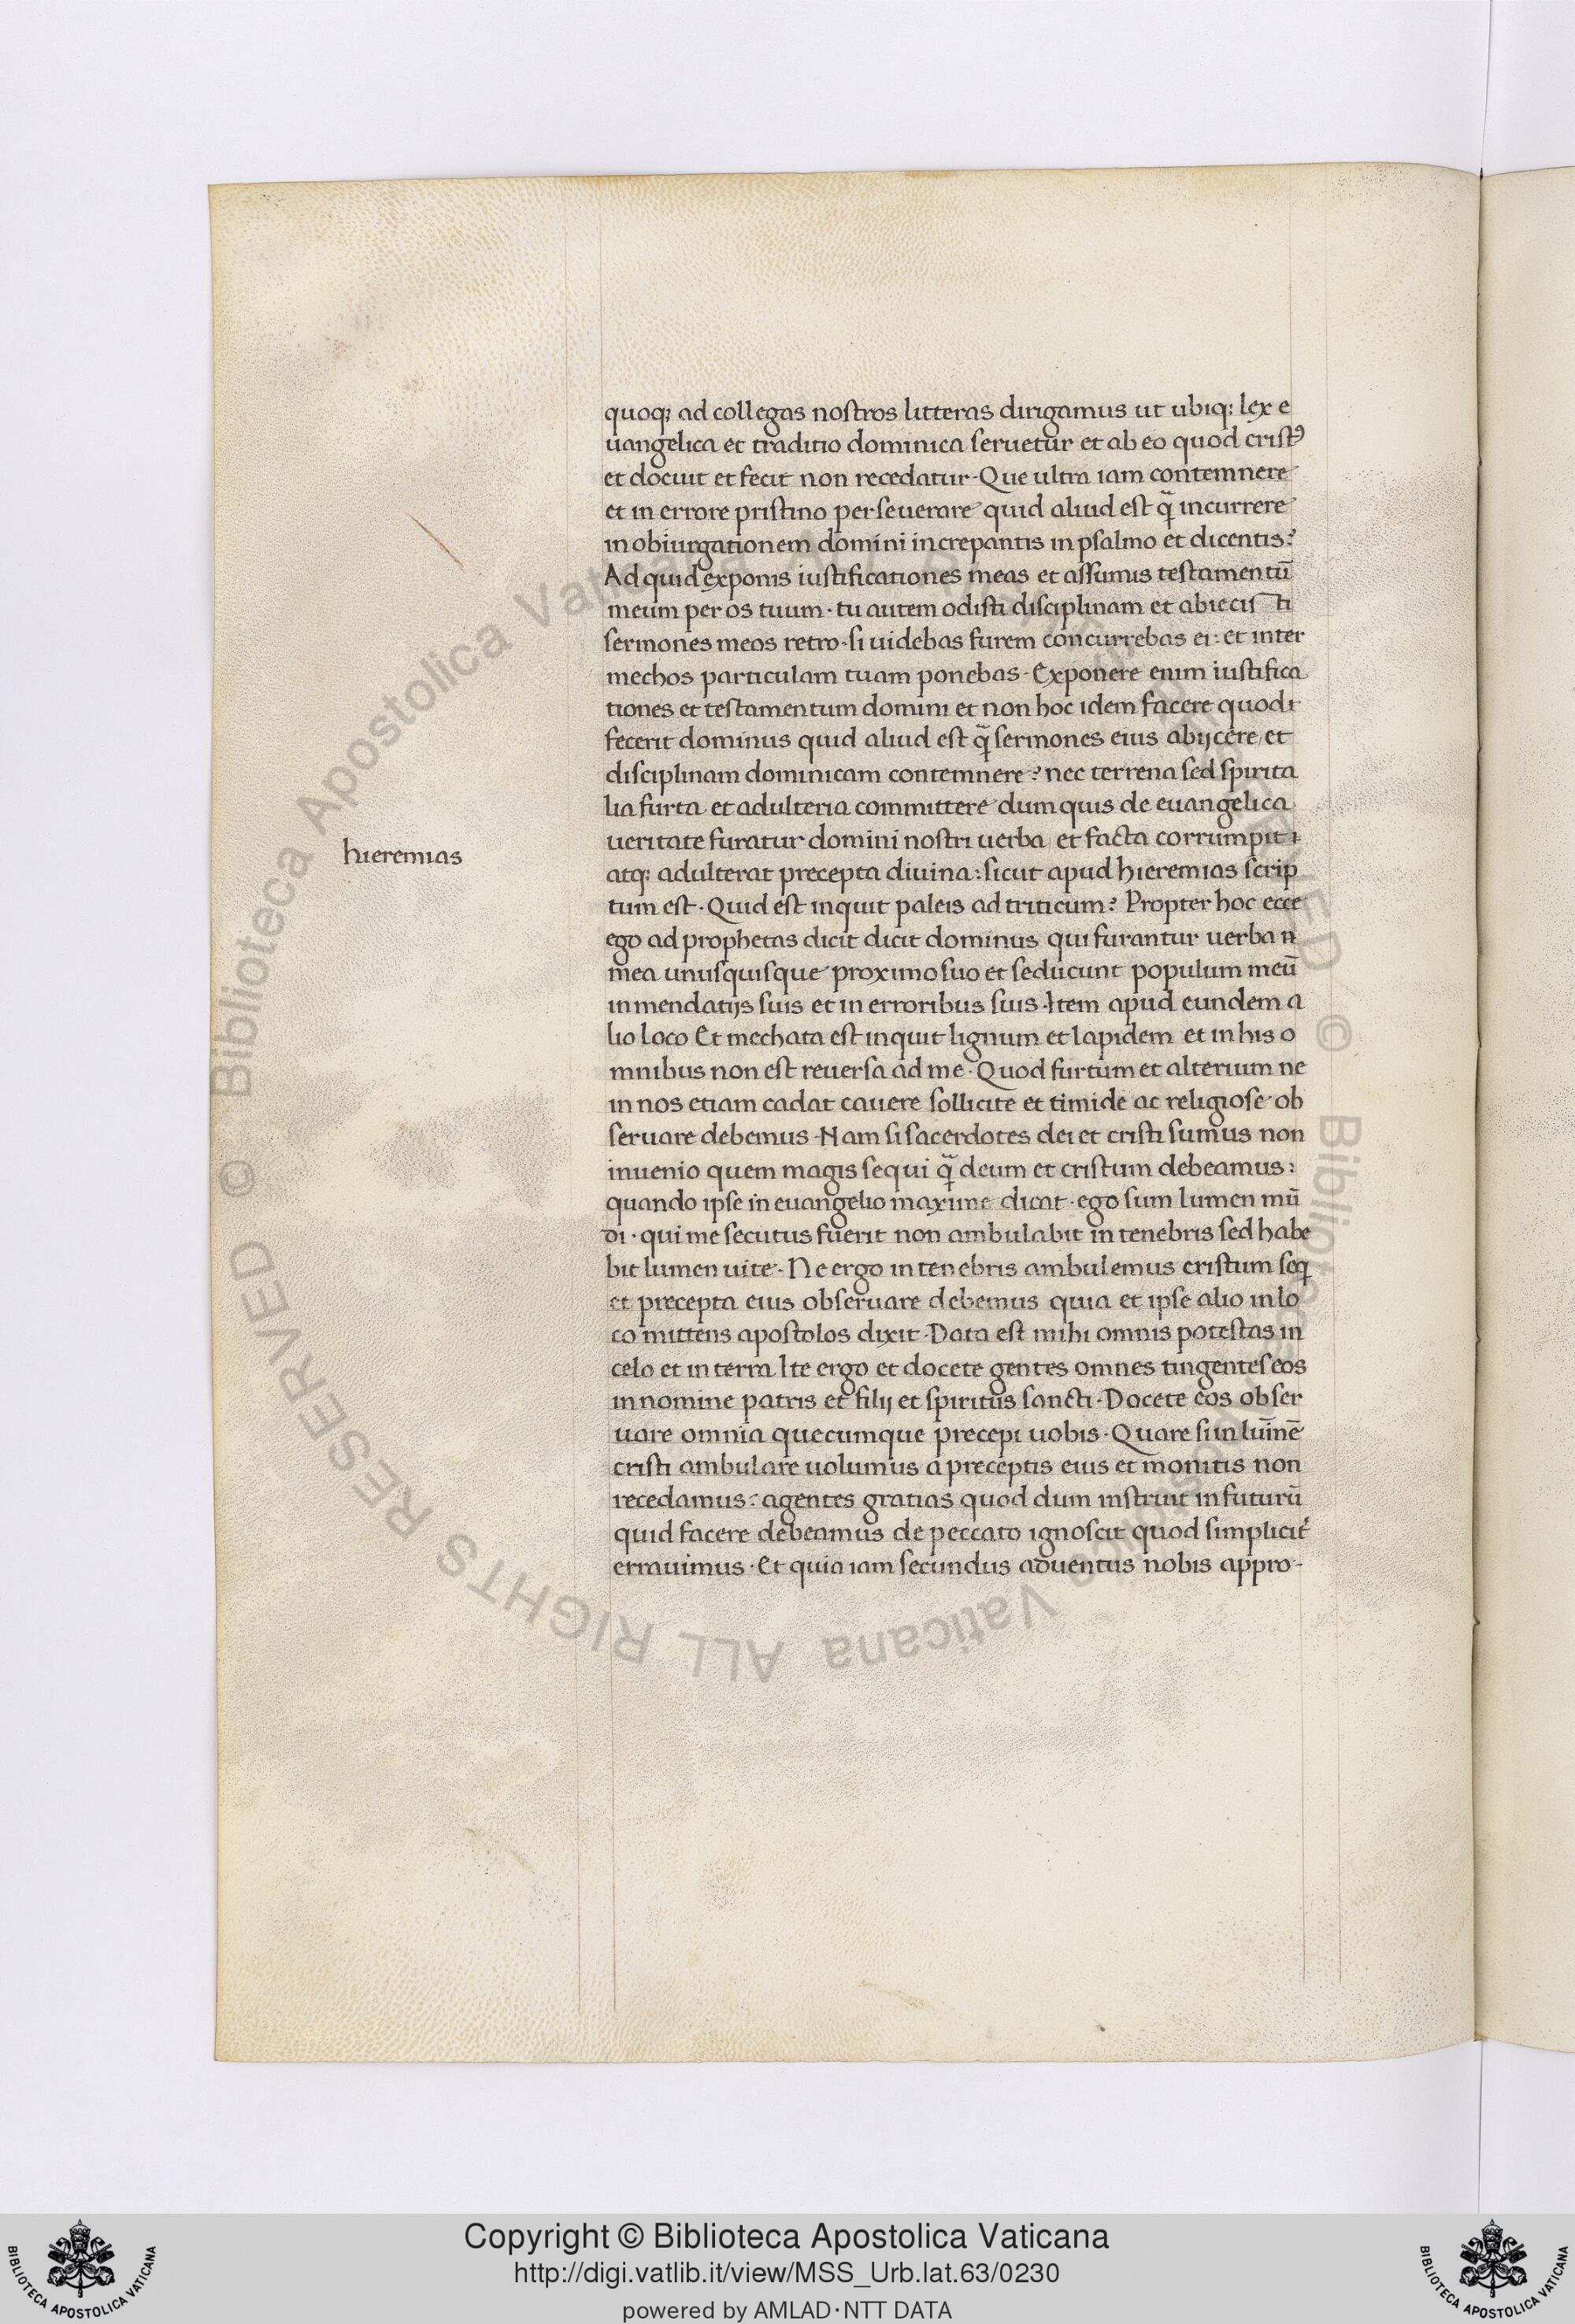 quoq; ad collegas nostros litteras dirigamus ut ubiq; lex e
uangelica et traditio dominica seruetur et ab eo quod cristꝰ
et docuit et fecit non recedatur · Que ultra iam contemnere
et in errore pristino perseuerare quid aliud est q̃ incurrere
in obiurgationem domini increpantis in psalmo et dicentis?
Ad quid exponis iustificationes meas et assumis testamentū
meum per os tuum · tu autem odisti disciplinam et abiecis ti
sermones meos retro · si uidebas furem concurrebas ei : et inter
mechos particulam tuam ponebas · Exponere enim iustifica
tiones et testamentum domini et non hoc idem facere quod
fecerit dominus quid aliud est q̃ sermones eius abijcere et
disciplinam dominicam contemnere ? nec terrena sed spirita
lia furta et adulteria committere dum quis de euangelica
ueritate furatur domini nostri uerba et facta corrumpit
hieremias
atq; adulterat precepta diuina : sicut apud hieremias scrip
tum est · Quid est inquit paleis ad triticum ? Propter hoc ecce
ego ad prophetas dicit dicit dominus qui furantur uerba
mea unusquisque proximo suo et seducunt populum meū
in mendatijs suis et in erroribus suis · Item apud eundem a
lio loco Et mechata est inquit lignum et lapidem et in his o
mnibus non est reuersa ad me · Quod furtum et alterium ne
in nos etiam cadat cauere sollicite et timide ac religiose ob
seruare debemus · Nam si sacerdotes dei et cristi sumus non
inuenio quem magis sequi q̃ deum et cristum debeamus :
quando ipse in euangelio maxime dicat · ego sum lumen mū
di · qui me secutus fuerit non ambulabit in tenebris sed habe
bit lumen uite · Ne ergo in tenebris ambulemus cristum seq
et precepta eius obseruare debemus quia et ipse alio in lo
co mittens apostolos dixit · Data est mihi omnis potestas in
celo et in terra Ite ergo et docete gentes omnes tingentes eos
in nomine patris et filij et spiritus sancti · Docete eos obser
uare omnia quecumque precepi uobis · Quare si in lum̄nē
cristi ambulare uolumus a preceptis eius et monitis non
recedamus : agentes gratias quod dum instruit in futurū
quid facere debeamus de peccato ignoscit quod simplicit̄
errauimus · Et quia iam secundus aduentus nobis appro-
© Biblioteca Apostolica Vaticana ALL RIGHTS RESERVED © Biblioteca Apostolica Vaticana ALL RIGHTS RESERVED
Copyright © Biblioteca Apostolica Vaticana
http://digi.vatlib.it/view/MSS_Urb.lat.63/0230
powered by AMLAD·NTT DATA
BIBLIOTECA APOSTOLICA VATICANA
BIBLIOTECA APOSTOLICA VATICANA